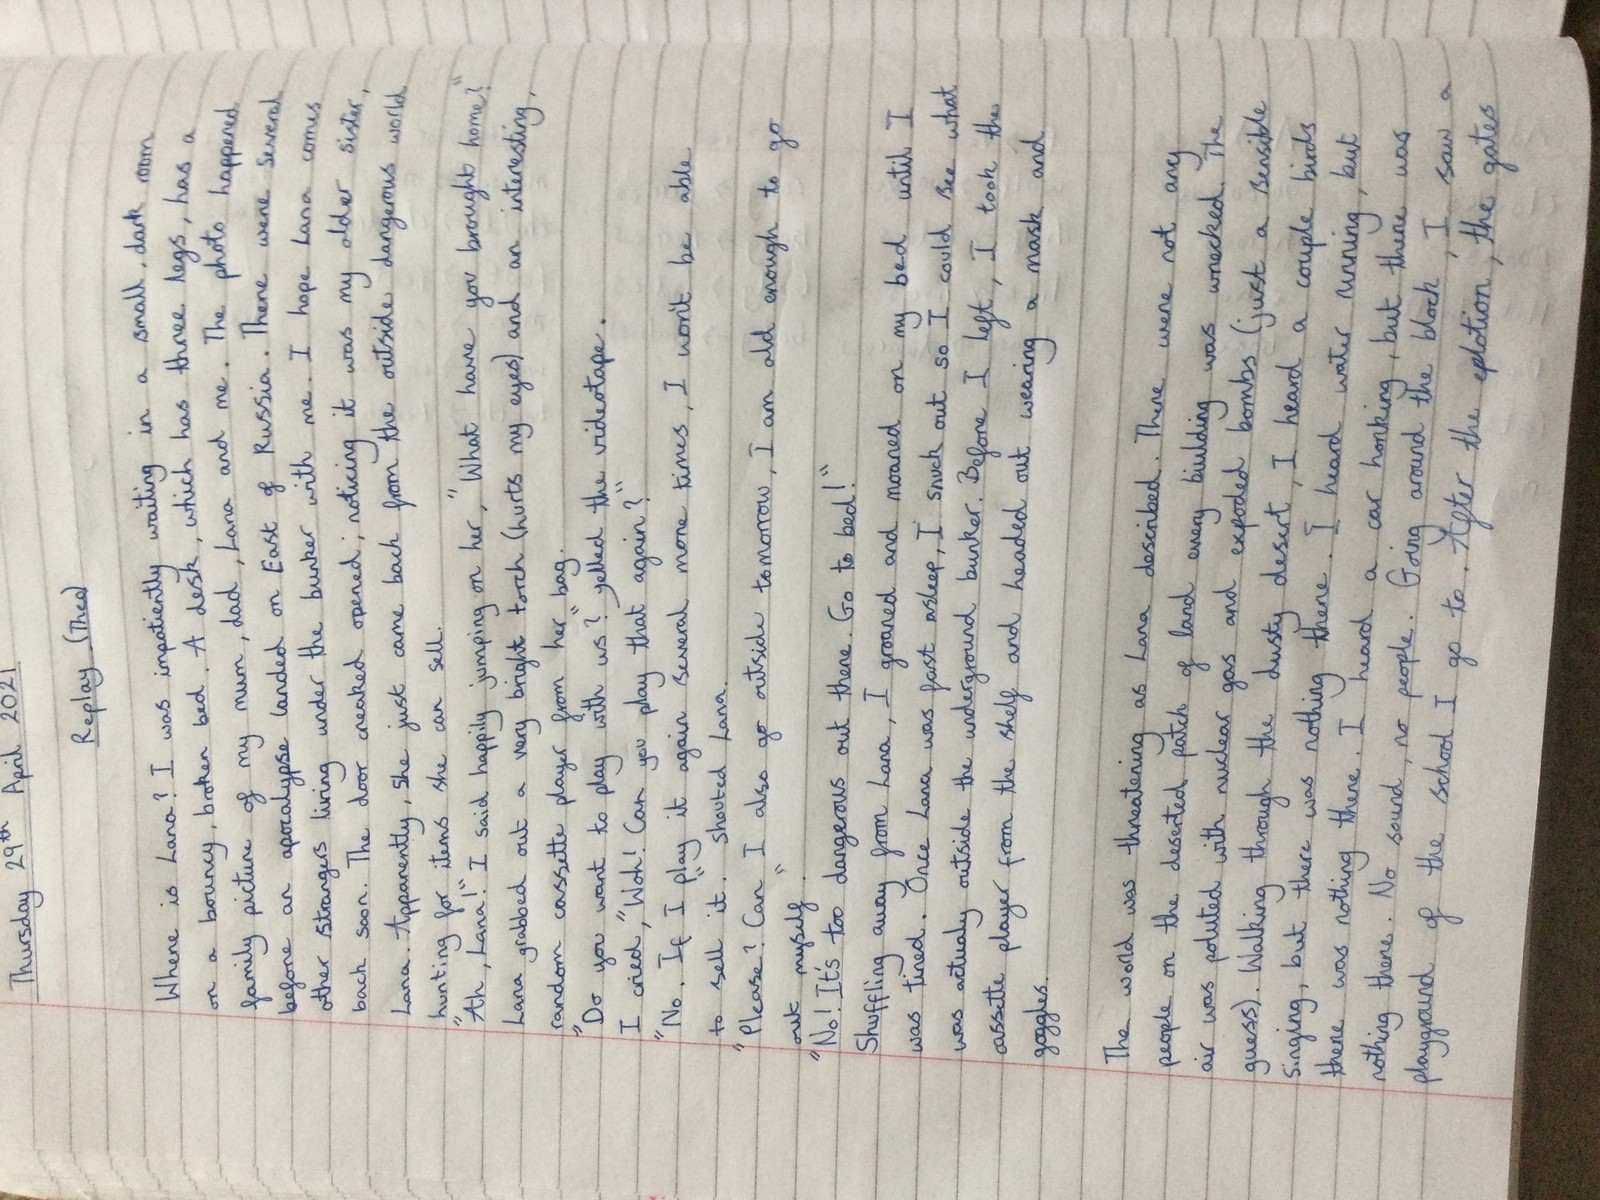 Thursday 29th April 2021
Replay (Theo)
Where is Lana? I was impatiently waiting in a small, dark room
on a bouncy, broken bed. A desk, which has three legs, has a
family picture of my mum, dad, Lana and me. The photo happened
before an apocalypse landed on East of Russia. There were several
other strangers living under the bunker with me. I hope Lana comes
back soon. The door creaked opened; noticing it was my older sister,
Lana. Apparently, she just came back from the outside dangerous world
hunting for items she can sell.
"Ah, Lana!" I said happily jumping on her, "What have you brought home?"
Lana grabbed out a very bright torch (hurts my eyes) and an interesting,
random cassette player from her bag.
"Do you want to play with us?" yelled the videotape.
I cried, "Woh! Can you play that again?"
"No. If I play it again several more times, I won't be able
to sell it." shouted Lana.
"Please? Can I also go outside tomorrow, I am old enough to go
out myself."
"No! It's too dangerous out there. Go to bed!"
Shuffling away from Lana, I groaned and moaned on my bed until I
was tired. Once Lana was fast asleep, I snuck out so I could see what
was actualy outside the underground bunker. Before I left, I took the
cassette player from the shelf and headed out wearing a mask and
goggles.
The world was threatening as Lana described. There were not any
people on the deserted patch of land and every building was wrecked. The
air was poluted with nuclear gas and exploded bombs (just a sensible
guess). Walking through the dusty desert, I heard a couple birds
singing, but there was nothing there. I heard water running, but
there was nothing there. I heard a car honking, but there was
nothing there. No sound, no people. Going around the block, I saw a
playground of the school I go to. After the eplotion, the gates